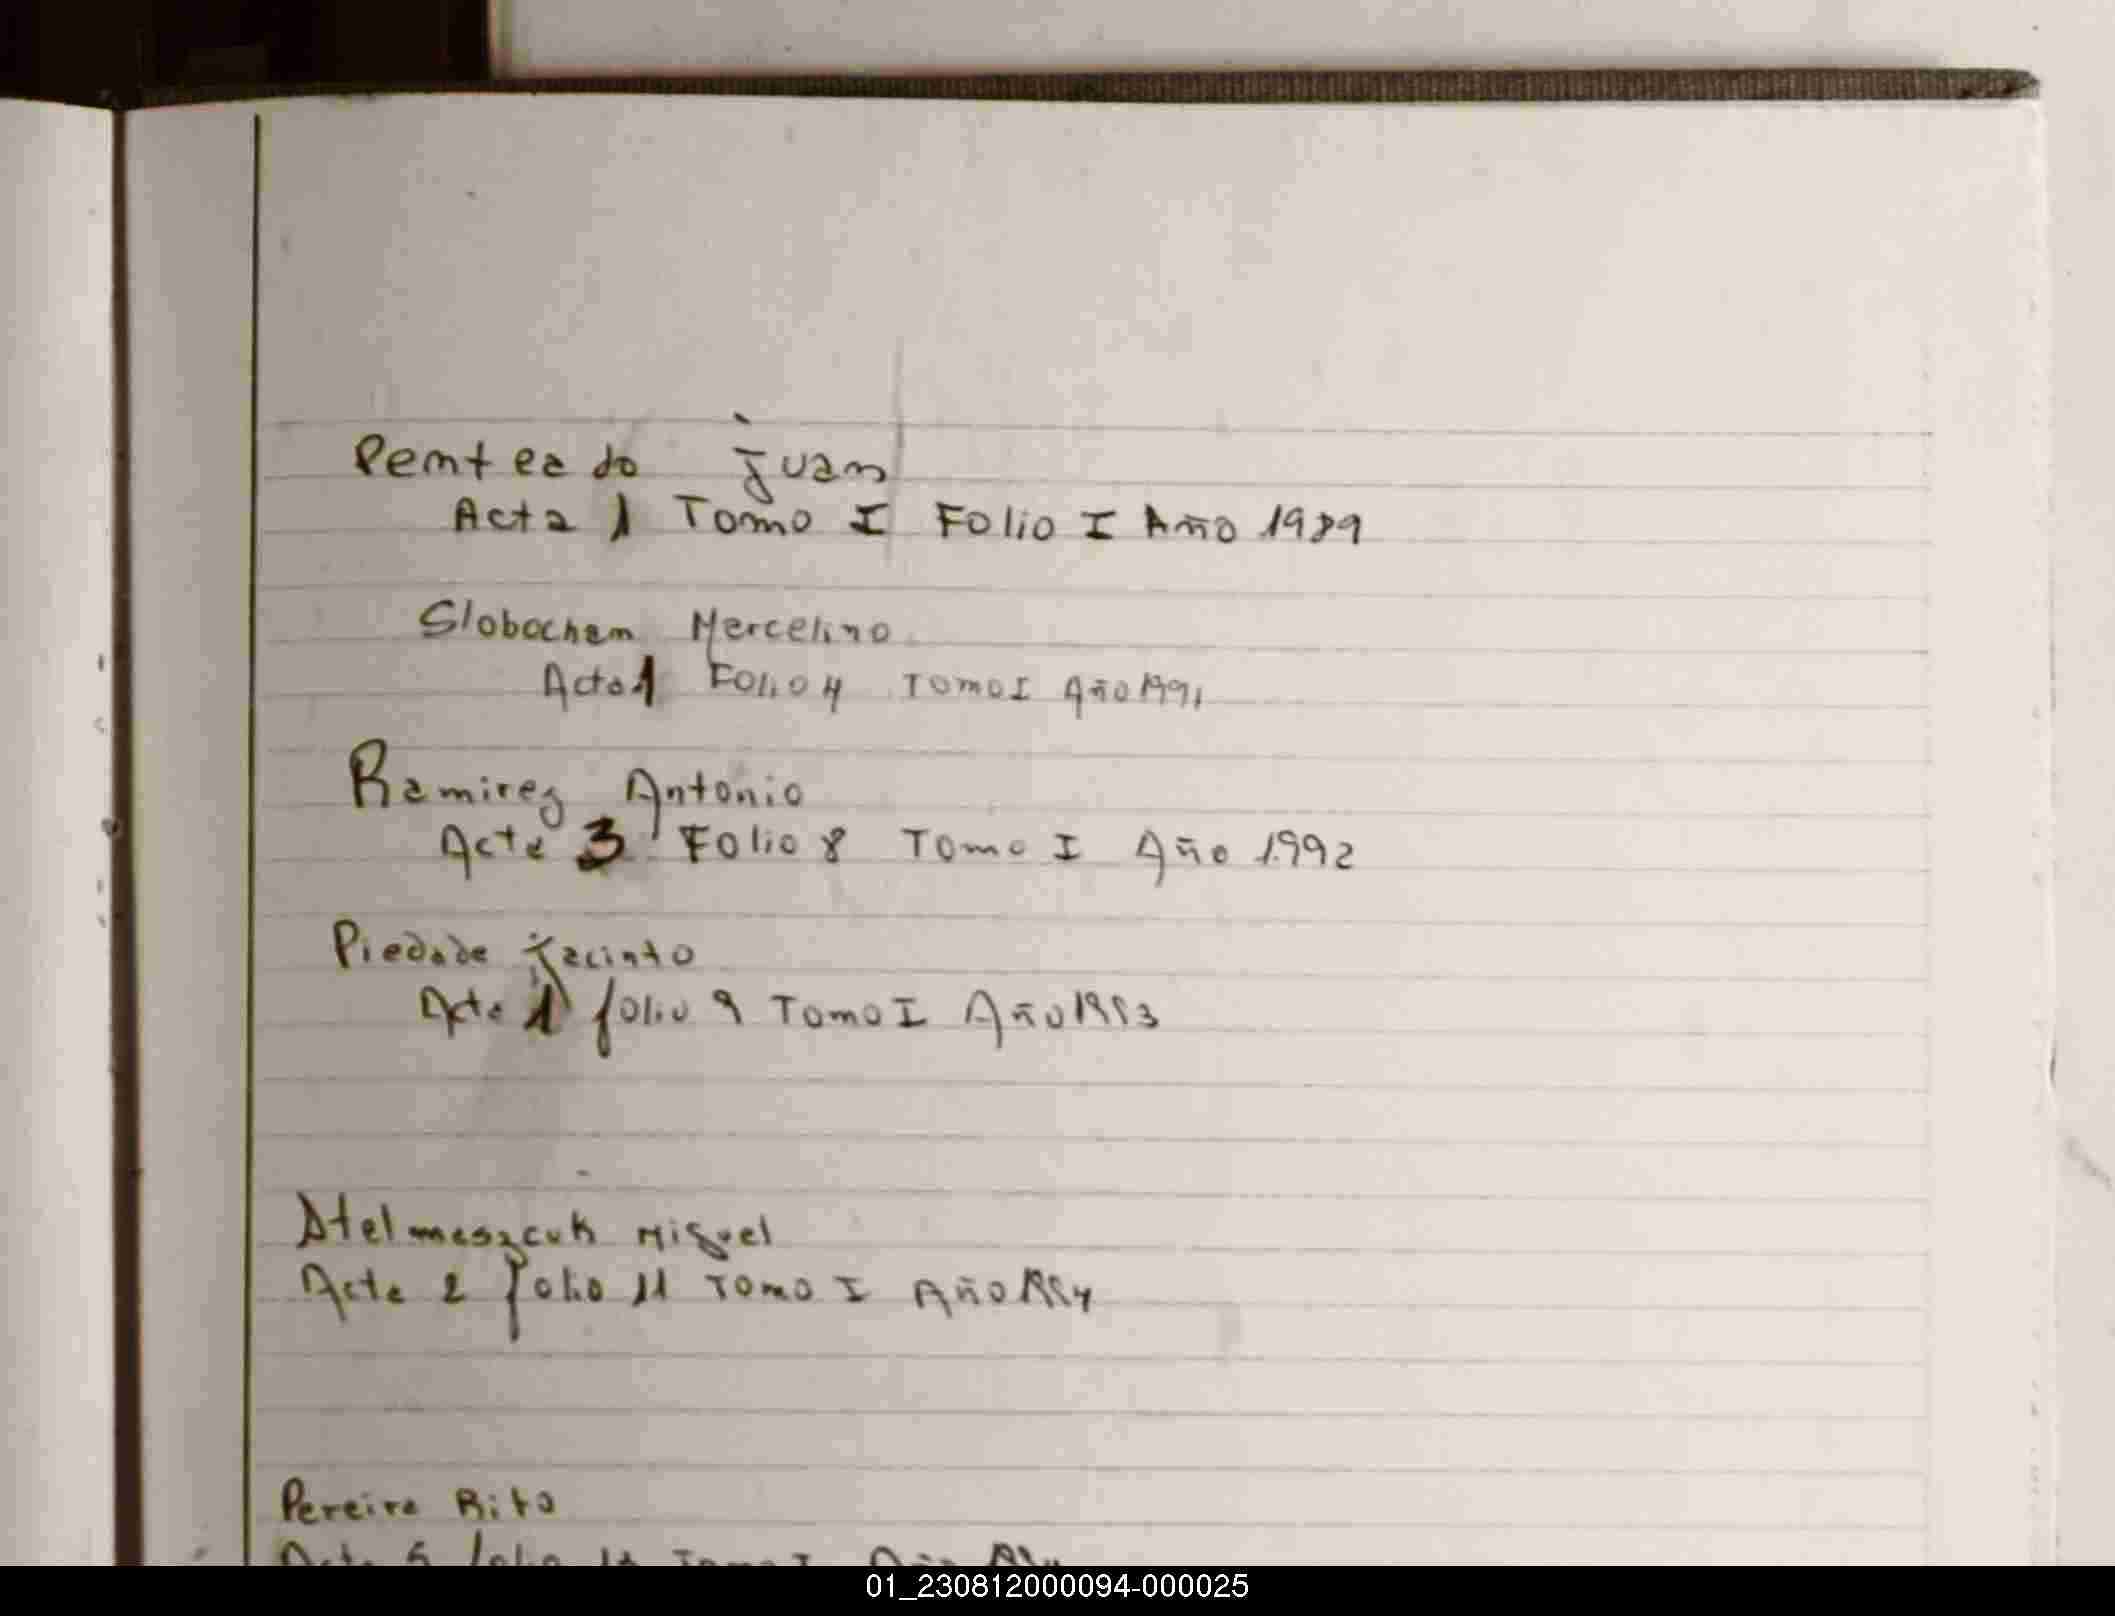 Penteado Juan
Acta 1 Tomo I Folio I Año 1989
Slobochem Mercelino
Acta 1 Folio 4 Tomo I Año 1991
Ramirez Antonio
Acte 3 Folio 8 Tomo I Año 1992
Piedade Jacinto
Acte 1 folio 9 Tomo I Año 1993
Atelmeszcuk Miguel
Acte 2 folio 11 Tomo I Año 1994
Pereira Rito
folio Tomo I Año
01_230812000094-000025